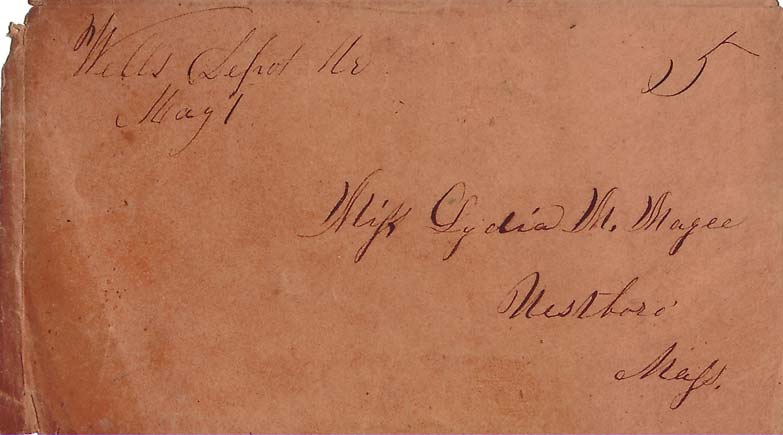 Wells Depot Me 5
May 1
Miss Lydia M. Magee
Westboro
Mass.